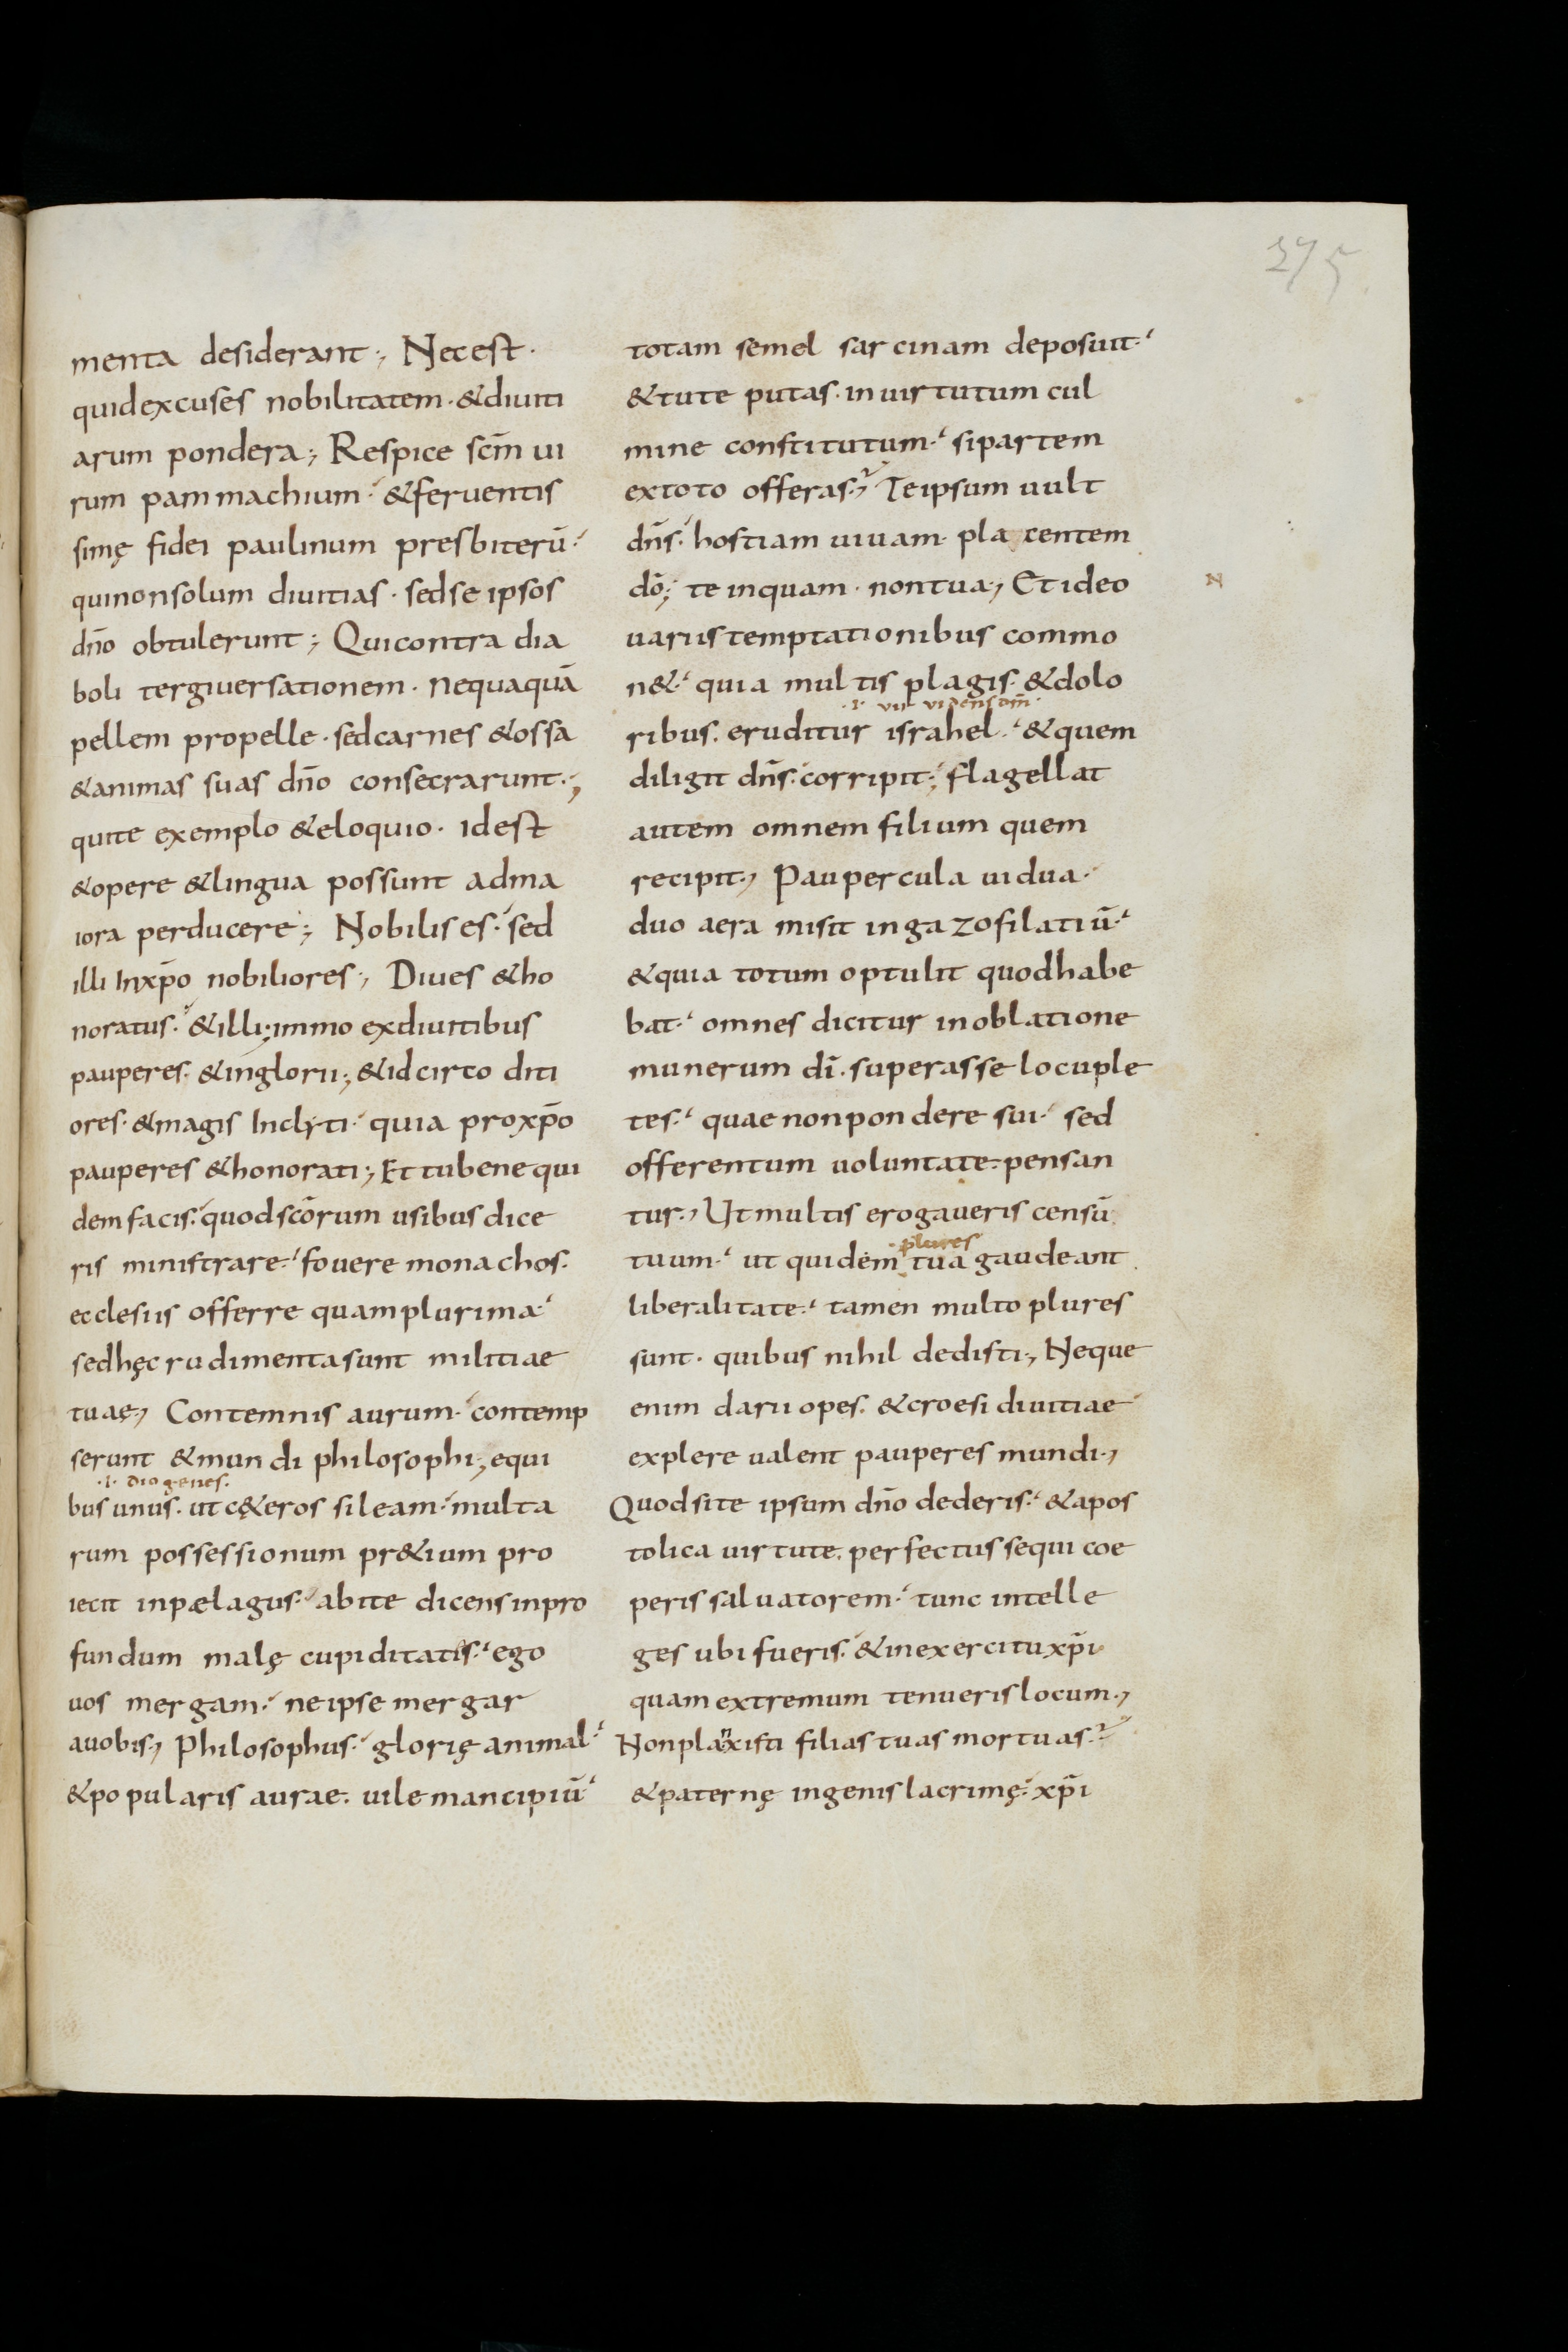 275
menta desiderant; Nec est·
quid excuses nobilitatem·&diuiti
arum pondera; Respice scm̄ ui
rum pammachium·&feruentis
simę fidei paulinum presbiterū·
qui non solum diuitias·sed se ipsos
dn̄o obtulerunt; Qui contra dia
boli tergiuersationem·nequaquā
pellem pro pelle·sed carnes &ossa
&animas suas dn̄o consecrarunt;
qui te exemplo &eloquio·id est
&opere &lingua possunt ad ma
iora perducere; Nobilis es·sed
illi In xp̄o nobiliores; Diues &ho
noratus·&illi;immo ex diuitibus
pauperes·&inglorii;&idcirco diti
ores·&magis Inclyti·quia pro xp̄o
pauperes &honorati; Et tu bene qui
dem facis·quod scōrum usibus dice
ris ministrare·fouere monachos·
ecclesiis offerre quam plurima·
sed hęc rudimenta sunt militiae
tuaę; Contemnis aurum·contemp
serunt &mundi philosophi;equi
·i· diogenes·
bus unus·ut c&eros sileam·multa
rum possessionum pr&ium pro
iecit in pælagus·abite dicens in pro
fundum malę cupiditatis·ego
uos mergam·ne ipse mergar
a uobis; Philosophus·glorię animal·
&popularis aurae·uile mancipiū·
totam semel sarcinam deposuit·
&tu te putas·in uirtutum cul
mine constitutum·si partem
ex toto offeras; Te ipsum uult
dn̄s·hostiam uiuam·placentem
dō; te inquam·non tua; Et ideo
N
uariis temptationibus commo
n&·quia multis plagis·&dolo
·i· vir videns dm̄·
ribus·eruditur israhel·&quem
diligit dn̄s·corripit; flagellat
autem omnem filium quem
recipit; Paupercula uidua·
duo aera misit in gazofilatiū·
&quia totum optulit quod habe
bat·omnes dicitur in oblatione
munerum dī·superasse locuple
tes·quae non pondere sui·sed
offerentum uoluntate·pensan
tur; Ut multis erogaueris censū
·plures
tuum·ut quidem tua gaudeant
liberalitate·tamen multo plures
sunt·quibus nihil dedisti; Neque
enim darii opes·&croesi diuitiae
explere ualent pauperes mundi;
Quod si te ipsum dn̄o dederis·&apos
tolica uirtute·perfectus sequi coe
peris saluatorem·tunc intelle
ges ubi fueris·&in exercitu xp̄i
quam extremum tenueris locum;
Non planxisti filias tuas mortuas·
&paternę in genis lacrimę·xp̄i